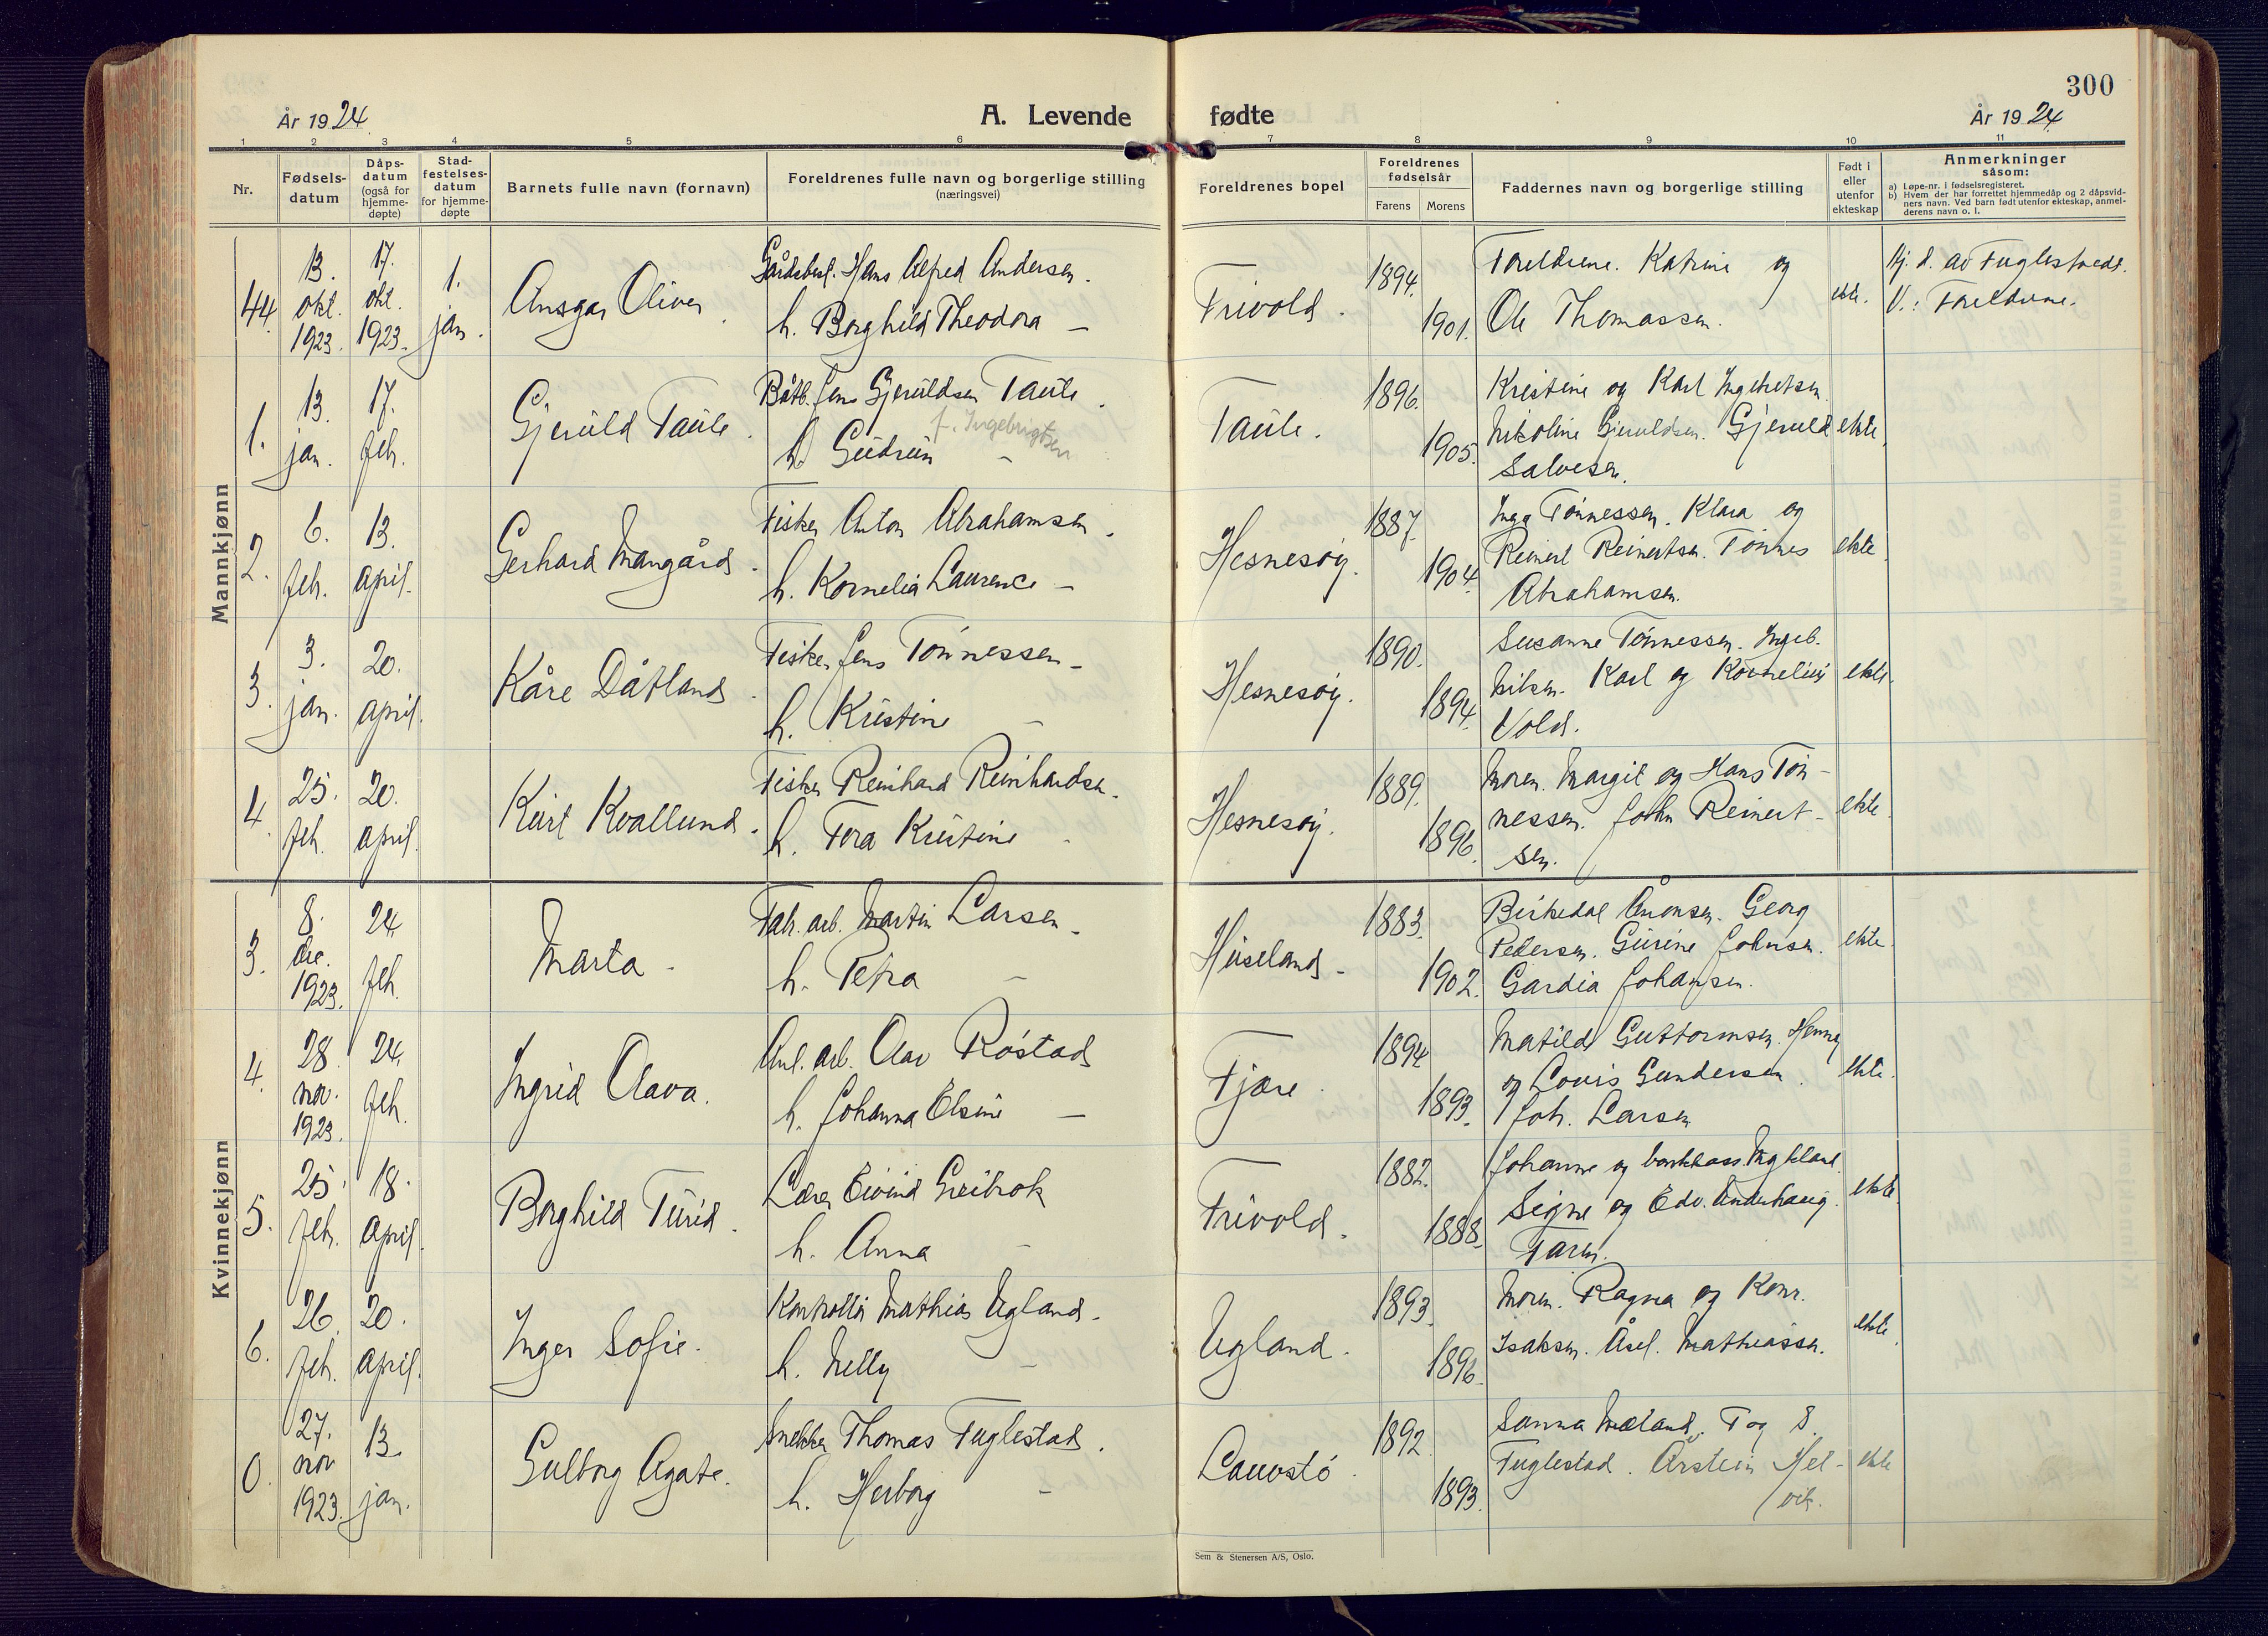 300
År 1924.
A. Levende fødte
År 1924
1 2 3 4 5 6 7 8 9 10 11
Nr.
Fødsels-
datum
Dåps-
datum
(også for
hjemme-
døpte)
Stad-
festelses-
datum
for hjemme-
døpte
Barnets fulle navn (fornavn)
Foreldrenes fulle navn og borgerlige stilling
(næringsvei)
Foreldrenes bopel
Foreldrenes
fødselsår
Farens
Morens
Faddernes navn og borgerlige stilling
Født i
eller
utenfor
ekteskap
Anmerkninger
såsom:
a) Løpe-nr. i fødselsregisteret.
b) Hvem der har forrettet hjemmedåp og 2 dåpsvid-
ners navn. Ved barn født utenfor ekteskap, anmel-
derens navn o. l.
Mannkjønn
44.
13.
okt.
1923.
17.
okt.
1923.
1.
jan.
Ansgar Oliver
Gårdsbest. Hans Alfred Andersen.
h. Borghild Theodora –
Frivold.
1894.
1901.
Foreldrene. Katrine og
Ole Thomassen.
ekte.
Hj. d. av Fuglestvedt.
V.: Foreldrene.
1.
13.
jan.
17.
feb.
Gjeruld Taule.
Båtb. Jens Gjeruldsen Taule.
f. Ingebrigtsen
h. Gudrun –
Taule.
1896.
1905.
Kristine og Karl Ingebretsen.
Nikoline Gjeruldsen. Gjeruld
Salvesen.
ekte.
2.
6.
feb.
13.
april.
Gerhard Mangård.
Fisker Anton Abrahamsen.
h. Kornelia Laurence –
Hesnesøy.
1887.
1904.
Inga Tønnessen. Klara og
Reinert Reinertsen. Tønnes
Abrahamsen.
ekte
3.
3.
jan.
20.
april.
Kåre Dåtland.
Fisker Jens Tønnessen –
h. Kristine –
Hesnesøy.
1890.
1894.
Susanne Tønnessen. Ingeb.
Nilsen. Karl og Kornelius
Vold.
ekte.
4.
25.
feb.
20.
april.
Kurt Kvallund.
Fisker Reinhard Reinhardsen.
h. Tora Kristine –
Hesnesøy.
1889.
1896.
Moren. Margit og Hans Tøn-
nessen. John Reinert-
sen.
ekte.
Kvinnekjønn
3.
8.
des.
1923.
24.
feb.
Marta –
Fab. arb. Martin Larsen.
h. Petra –
Huseland –
1883.
1902.
Birkedal Aronsen. Georg
Pedersen. Gurine Johnsen.
Gardia Johansen.
ekte.
4.
28.
nov.
1923.
24.
feb.
Ingrid Olava.
Anl. arb. Olav Røstad
h. Johanna Elsine –
Fjære.
1894
1893.
Matilde Guttormsen. Henny
og Louis Gundersen.
Joh. Larsen
ekte.
5.
25.
feb.
18.
april.
Borghild Turid.
Lærer Eivind Greibrok
h. Anna –
Frivold.
1882.
1888.
Johanne og bankkass. Ugland.
Signe og Edv. Underhaug.
Faren.
ekte
6.
26.
feb.
20.
april.
Inger Sofie.
Kontrollør Mathias Ugland.
h. Nelly –
Ugland.
1893.
1896.
Moren. Ragna og Konr.
Isaksen. Åsel. Mathiassen.
ekte.
0.
27.
nov
1923.
13.
jan.
Gulborg Agate.
Snekker Thomas Fuglestad.
h. Herborg –
Lauvstø.
1892.
1893.
Sanna Mæland. T og S.
Fuglestad. Arstein Hel-
vik.
ekte
Sem & Stenersen A/S, Oslo.